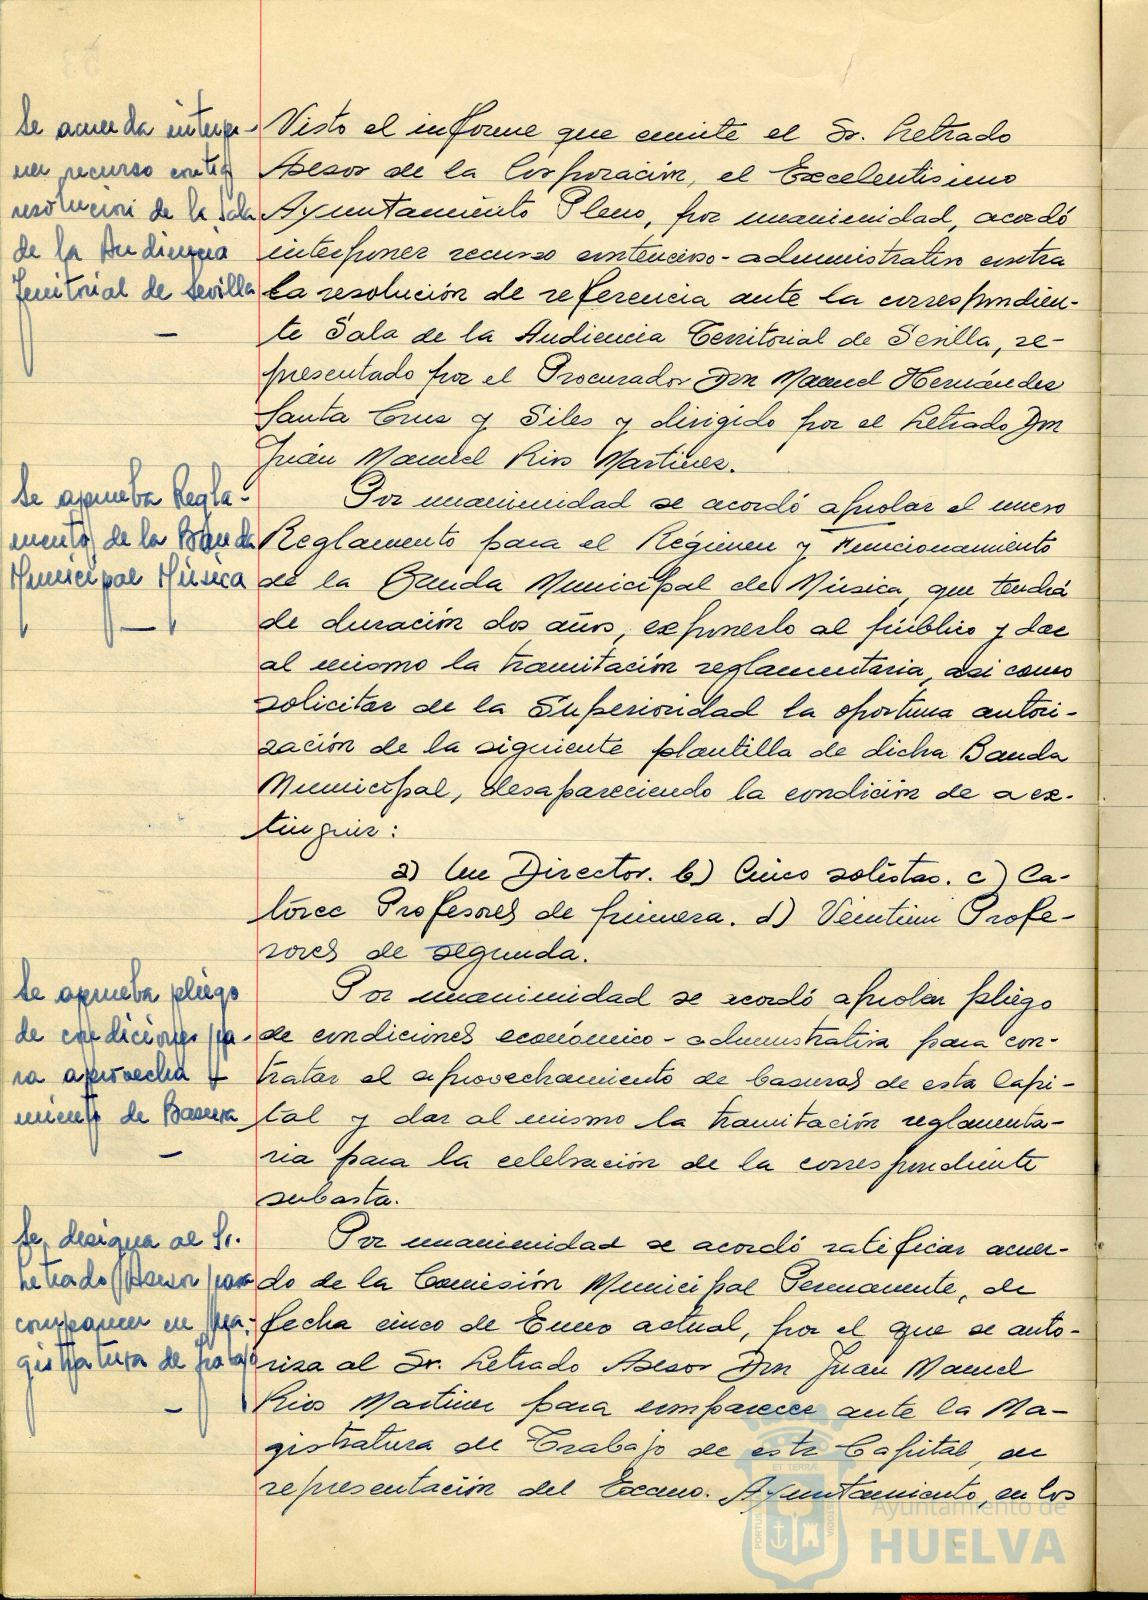 Se acuerda interpo-
ner recurso contra
resolución de la Sala
de la Audiencia
Territorial de Sevilla
—
Visto el informe que emite el Sr. Letrado
Asesor de la Corporación, el Excelentisimo
Ayuntamiento Pleno, por unanimidad, acordó
interponer recurso contencioso-administrativo contra
la resolución de referencia ante la correspondien-
te Sala de la Audiencia Territorial de Sevilla, re-
presentado por el Procurador Don Manuel Hernández
Santa Cruz y Siles y dirigido por el Letrado Don
Juán Manuel Rios Martinez.
Se aprueba Regla-
mento de la Banda
Municipal Música
—
Por unanimidad se acordó aprobar el nuevo
Reglamento para el Régimen y Funcionamiento
de la Banda Municipal de Música, que tendrá
de duración dos años, exponerlo al público y dar
al mismo la tramitación reglamentaria, asi como
solicitar de la Superioridad la oportuna autori-
zación de la siguiente plantilla de dicha Banda
Municipal, desapareciendo la condición de a ex-
tinguir:
a) Un Director. b) Cinco solistas. c) Ca-
torce Profesores de primera. d) Veintiun Profe-
sores de segunda.
Se aprueba pliego
de condiciones pa-
ra aprovecha-
miento de Basura
—
Por unanimidad se acordó aprobar pliego
de condiciones económico-administrativa para con-
tratar el aprovechamiento de basuras de esta Capi-
tal y dar al mismo la tramitación reglamenta-
ria para la celebración de la correspondiente
subasta.
Se designa al Sr.
Letrado Asesor para
comparecer en Ma-
gistratura de Trabajo
—
Por unanimidad se acordó ratificar acuer-
do de la Comisión Municipal Permanente, de
fecha cinco de Enero actual, por el que se auto-
riza al Sr. Letrado Asesor Don Juán Manuel
Rios Martinez para comparecer ante la Ma-
gistratura de Trabajo de esta Capital, en
representación del Excmo. Ayuntamiento, en los
Ayuntamiento de
HUELVA